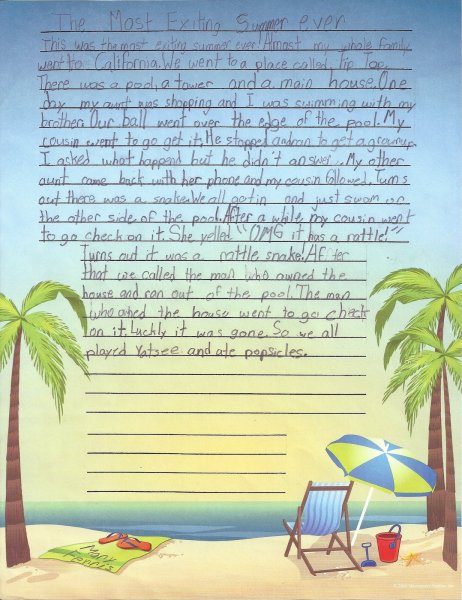 The Most Exiting Summer ever
This was the most exiting summer ever! Almost my whole family
went to California. We went to a place called, Tip Top.
There was a pool, a tower and a main house. One
day my aunt was shopping and I was swimming with my
brother. Our ball went over the edge of the pool. My
cousin went to go get it. He stopped and ran to get a grownup.
I acked what happend but he didn't answer. My other
aunt came back with her phone and my cousin followed. Turns
out there was a snake. We all got in and just swam on
the other side of the pool. After a while my cousin went
to go check on it. She yelled "OMG it has a rattle!"
Turns out it was a rattle snake! After
that we called the man who owned the
house and ran out of the pool. The man
who owned the house went to go check
on it. Luckly it was gone. So we all
played Yatsee and ate popsicles.
Mark
Dennis